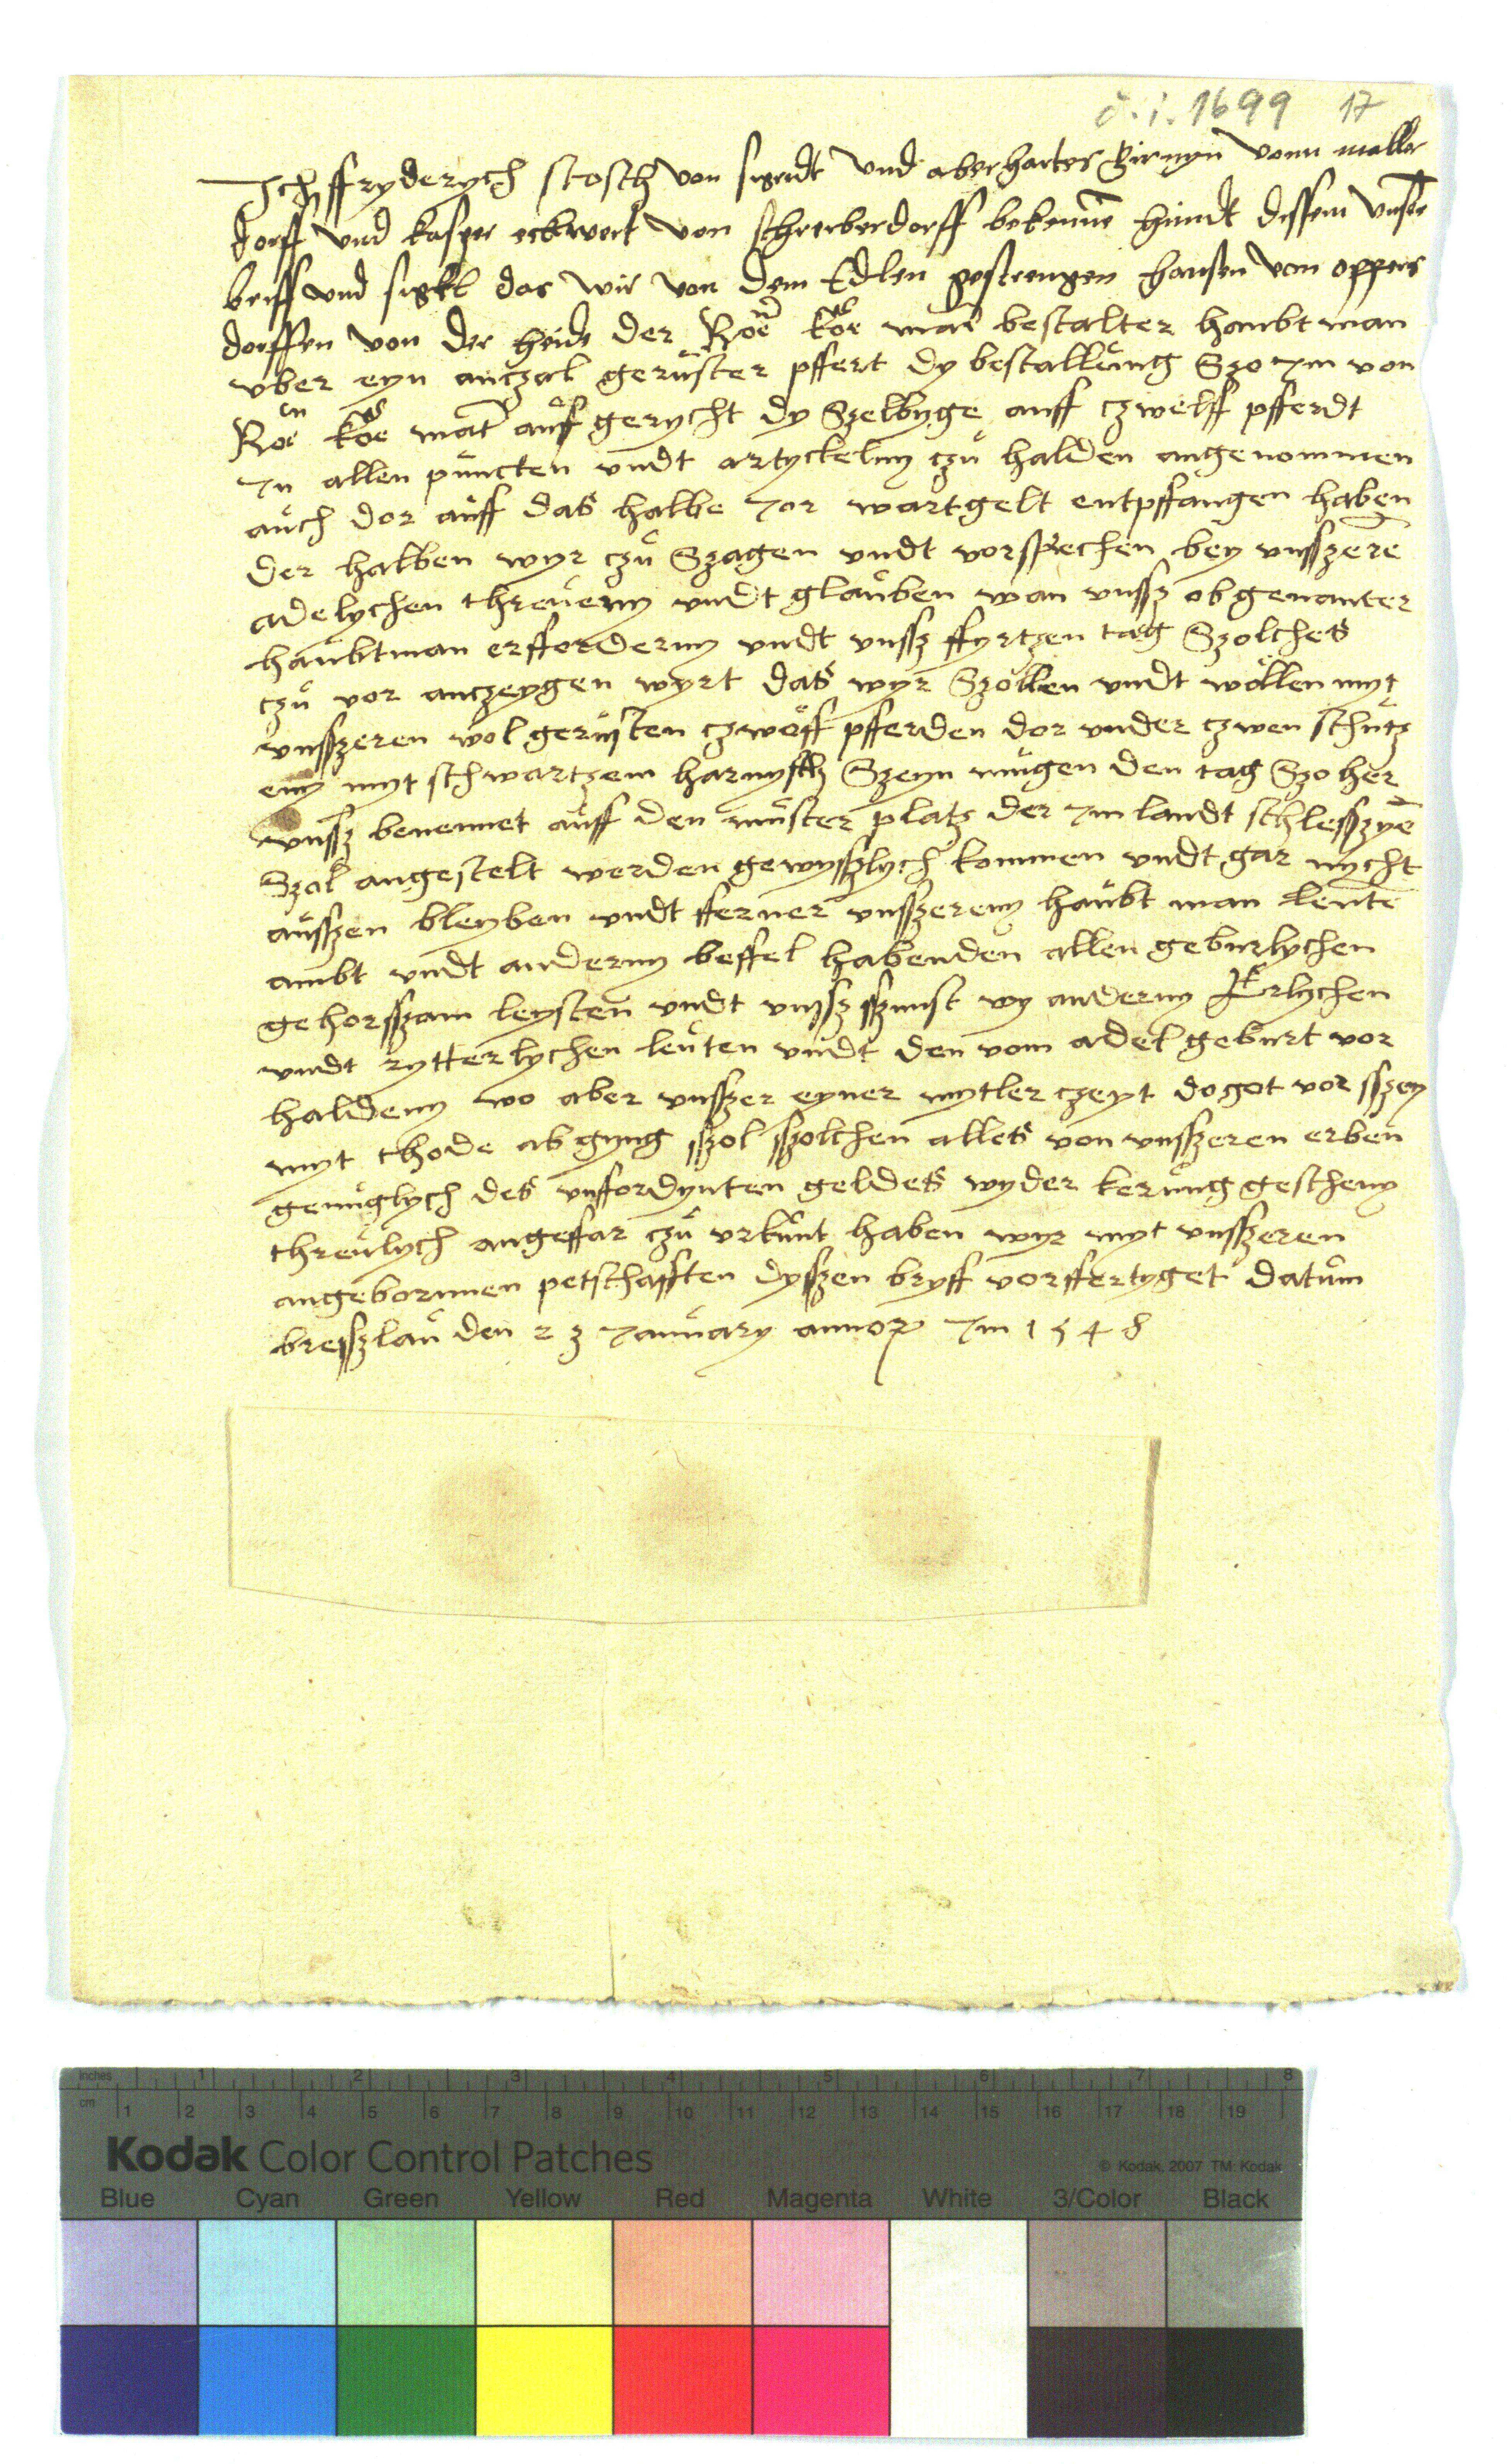 č. i. 1699 17
Ich ffryderych stosch von sigrdt und aberhartes Zirnyn vonn maller
dorff und kasper eckwert von schreiberdorff bekenne hundt dissem unser
briff und sigkl das wir von dem Edlen gestrengen hansen von oppers
dorffen von der heide der Roe koe mat bestalter haubtman
vber eyn anczal gerüster pffert dy bestallung Szo Im von
Roe koe mat auf gerycht dy Szelbyge auff czwelff pfferdt
In allen puncten vndt artyckelnn czu halden angenommen
auch dor auff das halbe Jor wartgelt entpffangen haben
der halben wyr czu Szagen vndt vorsprechen bey vnsszere
adelychen threuenn vndt glauben wan vnssz obgenanter
haubtman erffordernn vndt vnssz ffyrtzen tag Szolches
czu vor anczeygen wyrt das wyr Szollen vndt wollen myt
vnsszeren wol gerusten czwolff pfferden dor vnder czwen schutz
enn myt schwartzem harnyssz Szeyn mugen den tag Szo her
vnssz benennet auff den muster platz der Im landt schlesszye
Szol angestelt werden gewysszlych kommen vndt gar nycht
ausszen bleyben vndt fferner vnsszerenn haubt man leute
ambt vndt andernn beffel habenden allen geburlychen
gehorsszam leysten vndt vnssz sszunst wy andernn Erlychen
vndt rytterlychen leuten vndt den vom adel geburt vor
haldenn wo aber vnsszer eyner mytler czeyt do got vor sszey
myt thode abgyng sszol sszolchen alles von vnsszeren erben
genuglych des vnffordynten geldes wyder kerung geschenn
threulych angeffar czu vrkunt haben wyr myt vnsszeren
angebornnen petschafften dysszen bryff vorffertyget datum
bresszlau den 23 January annor Im 1548
inches 1 2 3 4 5 6 7 8
cm 1 2 3 4 5 6 7 8 9 10 11 12 13 14 15 16 17 18 19
Kodak Color Control Patches © Kodak, 2007 TM: Kodak
Blue Cyan Green Yellow Red Magenta White 3/Color Black